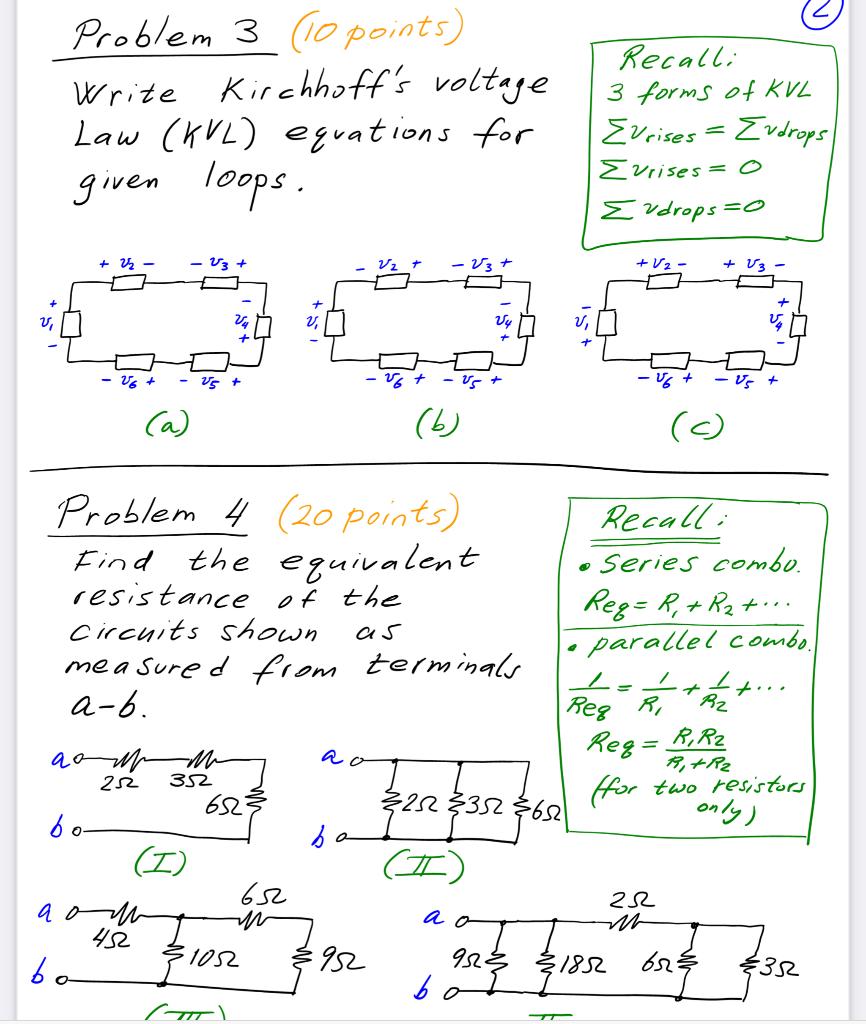 2
Problem 3 (10 points)
Write Kirchhoff's voltage
Law (KVL) equations for
given loops.
Recall:
3 forms of KVL
Σvrises = Σvdrops
Σvrises = 0
Σvdrops = 0
+ v2 - - v3 +
+ v1 -
- v4 +
- v6 + - v5 +
(a)
- v2 + - v3 +
+ v1 -
- v4 +
- v6 + - v5 +
(b)
+ v2 - + v3 -
- v1 +
+ v4 -
- v6 + - v5 +
(c)
Problem 4 (20 points)
Find the equivalent
resistance of the
circuits shown as
measured from terminals
a-b.
Recall:
• Series combo.
Req = R1 + R2 + ...
• parallel combo.
1/Req = 1/R1 + 1/R2 + ...
Req = R1R2/R1+R2
(for two resistors
only)
a
2Ω 3Ω
6Ω
b
(I)
a
2Ω 3Ω 6Ω
b
(II)
6Ω
a
4Ω
10Ω 9Ω
b
(III)
2Ω
a
9Ω 18Ω 6Ω 3Ω
b